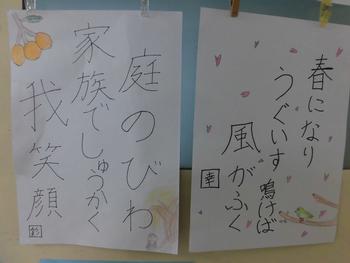 春になり
うぐいす鳴けば
風がふく
幸
庭のびわ
家族でしゅうかく
我笑顔